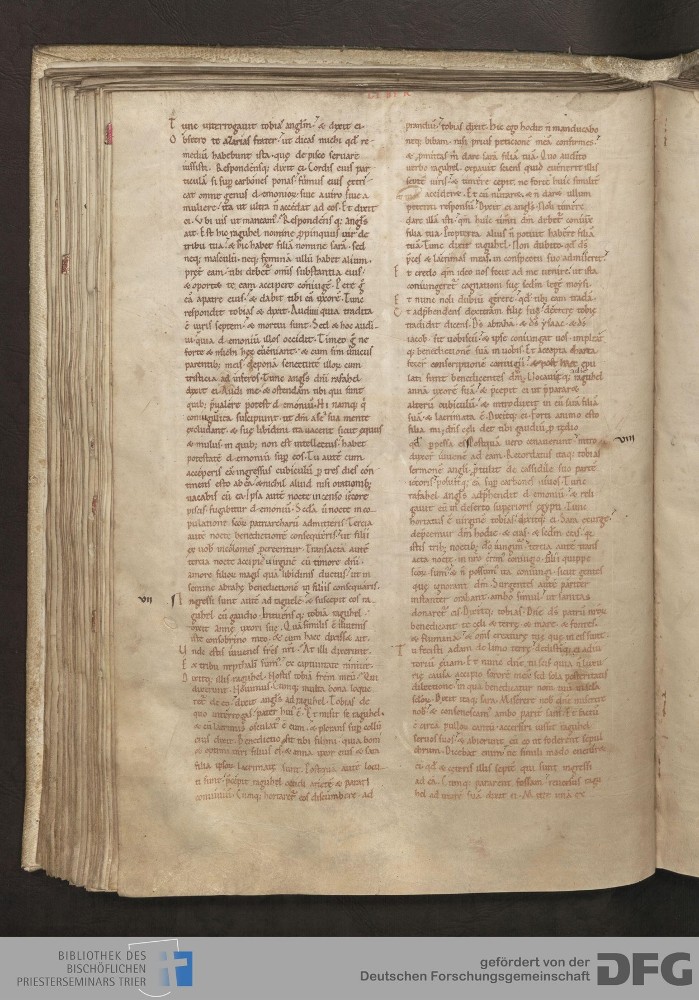 LIBER
Tunc interrogauit tobias anglm̄ & dixit ei
Obsecro te azarias frater ut dicas michi qd̄ re
mediū habebunt ista que de pisce seruare
iussisti. Respondensq; dixit ei. Cordis eius par
ticulā si sup carbones ponas fumus eius extri
cat omne genus demoniorū siue a uiro siue a
muliere ita ut ultra n̄ accedat ad eos. Et dixit
ei. Vbi uis ut maneam? Respondens q; angls
ait. Est hic raguhel nomine ppinquus uir de
tribu tua & hic habet filiā nomine sarā. sed
neq; masculū neq; feminā ullū habet alium
pret eam. tibi debet om̄is substantia eius
& oportet te eam accipere coniugē. Pete g̊
eā apatre eius & dabit tibi eā uxorē. Tunc
respondit tobias & dixit. Audiui quia tradita
ē uiris septem & mortui sunt. Sed & hoc audi
ui quia demoniū illos occidit. Timeo g̊ ne
forte & michi hec eueniant & cum sim unicus
parentib; meis deponā senectutē illorū cum
tristicia ad inferos. Tunc angls dn̄i rafahel
dixit ei. Audi me & ostendam tibi qui sunt
quib; pualere potest demonium. Hi namq; q
coniugiū ita suscipiunt ut dm̄ a se & a sua mente
excludant & sue libidini ita uacent sicut equus
& mulus in quib; non est intellectus habet
potestatē demoniū sup eos. Tu autē cum
acceperis eā ingressus cubiculū p tres dies con
tinens esto ab ea & nichil aliud nisi orationib;
uacabis cū ea. Ipsa autē nocte incenso iecore
piscis fugabitur demoniū. Scda ū nocte in co
pulatione scōrū patriarcharū admitteris. Tercia
autē nocte benedictionē consequeris ut filii
ex uob incolomes pcreentur. Transacta autē
tercia nocte accipe uirginē cū timore dn̄i
amore filiorū magis quā libidinis ductus ut in
semine abrahe benedictionē in filiis consequaris.
VII
Ingressi sunt autē ad raguelē & suscepit eos ra
guhel cū gaudio. Intuensq; tobiā raguhel
dixit anne uxori sue. Quā similis ē iuuenis
iste consobrino meo. & cum hec dixisset ait.
Vnde estis iuuenes frēs nr̄i. At illi dixerunt.
Ex tribu nepthali sumus ex captiuitate niniue.
Dixitq; illis raguhel. Nostis tobiā frēm meū? Qui
dixerunt. Nouimus. Cumq; multa bona loque
ret de eo dixit angls ad raguhel. Tobias de
quo interrogas pater hui ē. Et misit se raguhel
& cū lacrimis osculat ē eum & plorans sup collū
eius dixit. Benedictio sit tibi fili mi quia boni
& optimi uiri filius es. & anna uxor eius & sara
filia ipsorū lacrimate sunt. Postquā autē locu
ti sunt pcepit raguhel occidi arietē & parari
conuiuiū. Cumq; hortaret eos discumbere ad
prandiū tobias dixit. Hic ego hodie n̄ manducabo
neq; bibam nisi prius peticionē meā confirmes
& pmittas m̄ dare sarā filiā tuā. Quo audito
uerbo raguhel expauit sciens quid euenerit illis
septē uiris & timere cepit ne forte huic similit
accideret. Et cū nutaret & n̄ daret ullum
petenti responsū dixit ei angls. Noli timere
dare illā isti qm̄ huic timenti dm̄ debet coniunx
filia tua. Propterea alius n̄ potuit habere filiā
tuā. Tunc dixit raguhel. Non dubito qd̄ ds̄
pces & lacrimas meas in conspectu suo admiserit
Et credo qm̄ ideo uos fecit ad me uenire ut ista
coniungeret cognationi sue scdm legē moysi
Et nunc noli dubiū gerere qd̄ tibi eam tradā.
Et adphendens dexterām filie sue dextere tobie
tradidit dicens. Ds̄ abrahā & ds̄ ysaac & ds̄
iacob sit uobiscū & ipse coniungat uos impleat
q; benedictionē suā in uobis. Et accepta charta
fecer conscriptionē coniugii & post hec epu
lati sunt benedicentes dm̄. Vocauitq; raguhel
annā uxorē suā & pcepit ei ut ppararet
alterū cubiculū & introduxit in eū sarā filiā
suā & lacrimata ē. Dixitq; ei. Forti animo esto
filia mi, dn̄s celi det tibi gaudiū p tedio
qd̄ ppessa es. Postquā uero cenauerunt intro
VIII
duxert iuuenē ad eam. Recordatus itaq; tobias
sermonē angli ptulit de cassidile suo partē
iecoris posuitq; eā sup carbones uiuos. Tunc
rafahel angls adphendit demoniū & reli
gauit eū in deserto superioris egypti. Tunc
hortatus ē uirginē tobias dixitq; ei. Sara exurge
depcemur dm̄ hodie & cras & scdm cras q;
istis trib; noctib; do iungim tercia autē trans
acta nocte in nr̄o erim coniugio. filii quippe
scōrū sum & n̄ possum ita coniungi sicut gentes
que ignorant dm̄. Surgentes autē pariter
instanter orabant ambo simul ut sanitas
donaret eis. Dixitq; tobias. Dn̄e ds̄ patrū nr̄orū
benedicant te celi & terre & mare & fontes
& flumina & om̄s creature tue que in eis sunt.
Tu fecisti adam de limo terre dedistiq; ei adiu
toriū euam. Et nunc dn̄e tu scis quia n̄ luxu
rie causa accipio sororē meā sed sola posteritatis
dilectione in qua benedicatur nom tuū in scla
sclorū. Dixit itaq; sara. Miserere nob dn̄e miserere
nob & consenescam ambo parit sani. Et factū
ē circa pullorū cantū accersiri iussit raguhel
seruos suos & abierunt cū eo ut foderent sepul
chrum. Dicebat enim ne simili modo euenerit
ei qd̄ & ceteris illis septē qui sunt ingressi
ad eā. Cumq; parassent fossam reuersus ragu
hel ad uxorē suā dixit ei. Mitte unā ex
BIBLIOTHEK DES
BISCHÖFLICHEN
PRIESTERSEMINARS TRIER
gefördert von der
Deutschen Forschungsgemeinschaft
DFG